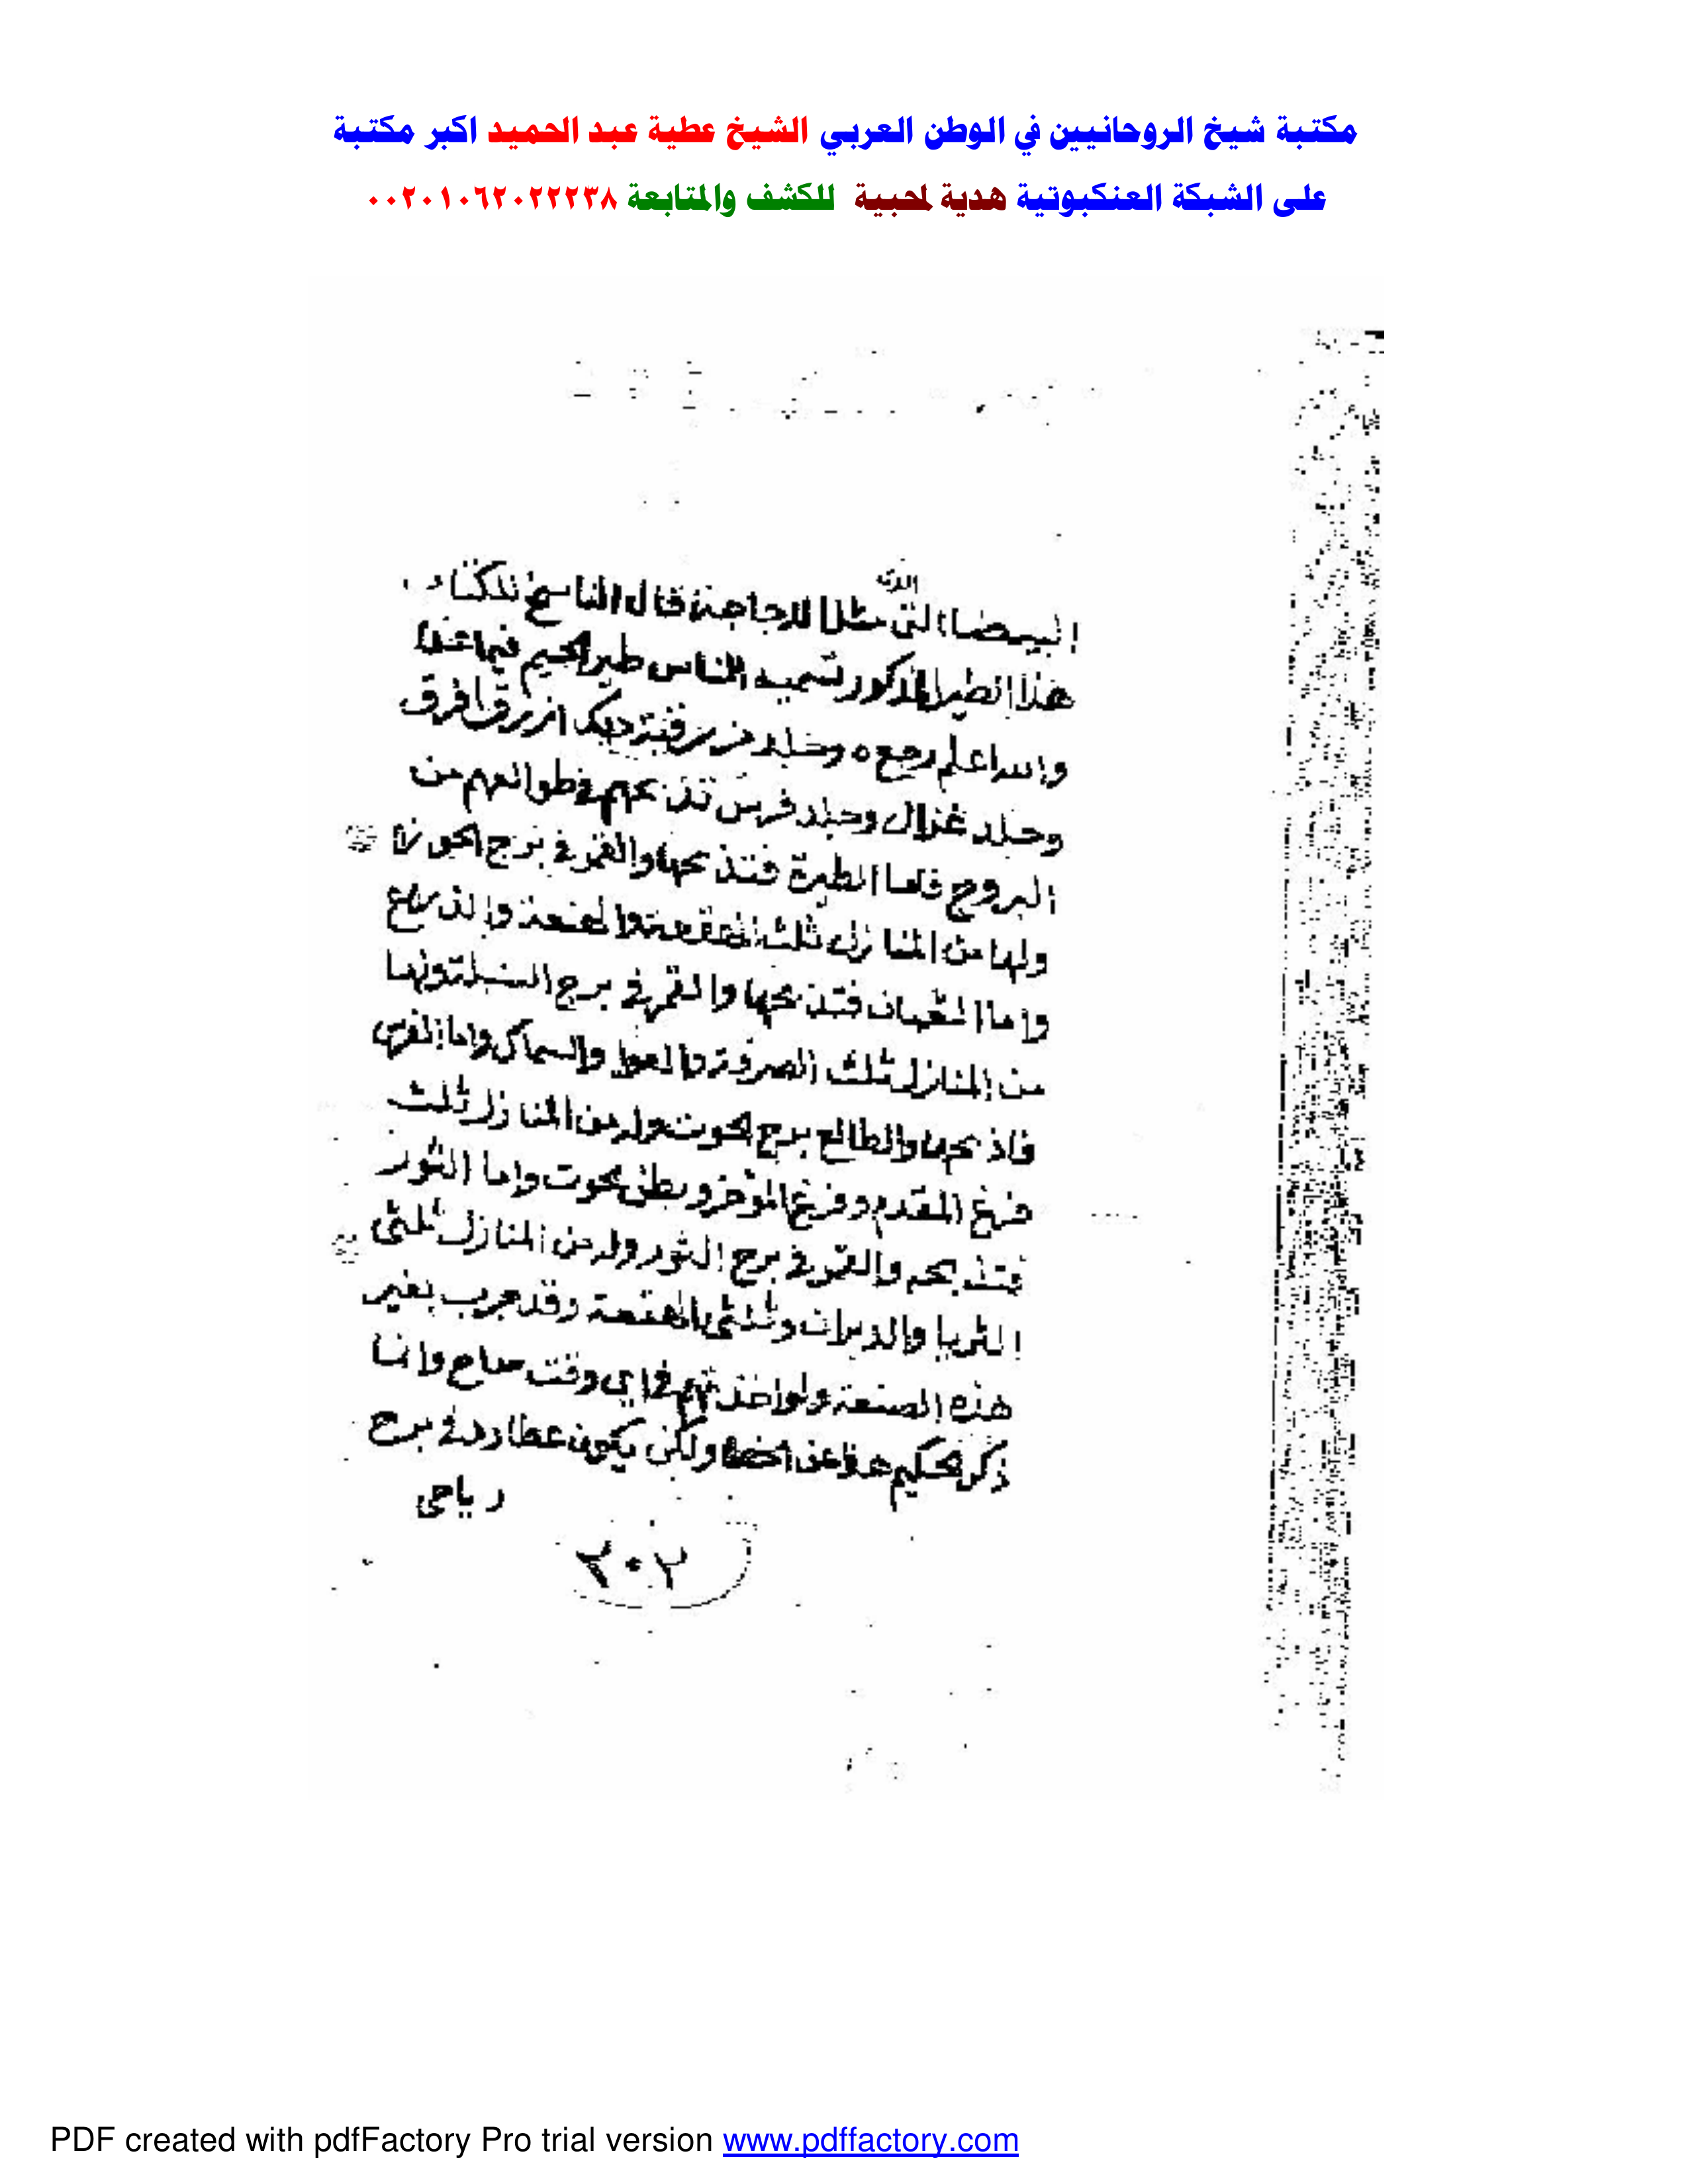 مكتبة شيخ الروحانيين في الوطن العربي الشيخ عطية عبد الحميد اكبر مكتبة
على الشبكة العنكبوتية هدية لمحبية للكشف والمتابعة ٠٠٢٠١٠٦٢٠٢٢٢٣٨
البيضا التي مثل الدجاجة قال الناسخ
هذا الطير المذكور تسميه الناس طير
واسه اعلم رجع وجلد ديك ازرق افرق
وجلد غزال وجلد فرس تذبحهم في طوالعهم من
البروج فاما الطيرة فتذبحها والقمر في برج الجوزا
ولها من المنازل ثلث الهقعة والهنعة والذراع
واما الثعبان فتذبحها والقمر في برج السنبلة ولها
من المنازل ثلث الصرفة والعوا والسماك واما الفرس
فاذبحها والطالع برج الحوت وله من المنازل ثلث
فرغ المقدم وفرغ الموخر وبطن الحوت واما الثور
فتذبحه والقمر في برج الثور وله من المنازل ثلثي
الثريا والدبران وثلثي الهقعة وقد جرب بغير
هذه الصنعة ولو اخذتهم في اي وقت صاح وانما
ذكر الحكيم هذا عن ولكن يكون عطارد في برج
رياحي
٢٠٢
PDF created with pdfFactory Pro trial version www.pdffactory.com